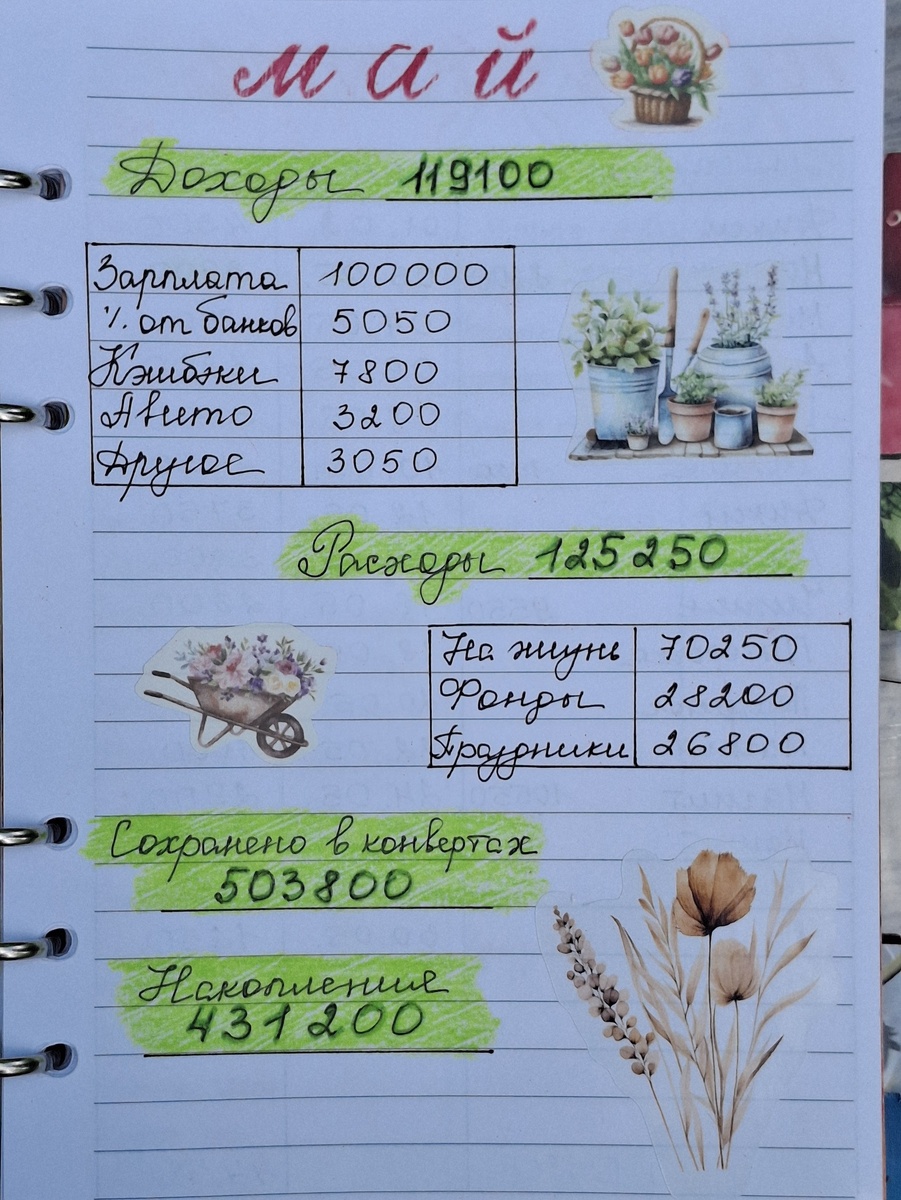 май
Доходы 119100
Зарплата 100000
% от банков 5050
Кэшбэки 7800
Авито 3200
Другое 3050
Расходы 125250
На жизнь 70250
Фонды 28200
Праздники 26800
Сохранено в конвертах
503800
Накопления
431200